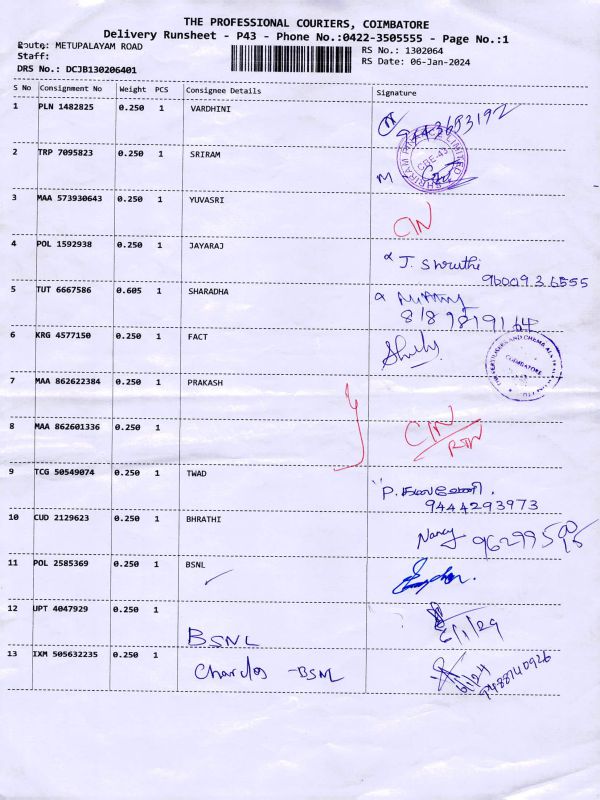 THE PROFESSIONAL COURIERS, COIMBATORE
Delivery Runsheet - P43 - Phone No.:0422-3505555 - Page No.:1
Route: METUPALAYAM ROAD
RS No.: 1302064
Staff:
RS Date: 06-Jan-2024
DRS No.: DCJB130206401
S No Consignment No Weight PCS Consignee Details Signature
1 PLN 1482825 0.250 1 VARDHINI 9443693192
2 TRP 7095823 0.250 1 SRIRAM M
SHRIRAM LIMITED
CBE-43
3 MAA 573930643 0.250 1 YUVASRI C/N
4 POL 1592938 0.250 1 JAYARAJ J. Shruthi
9600936555
5 TUT 6667586 0.605 1 SHARADHA
6 KRG 4577150 0.250 1 FACT
COIMBATORE
7 MAA 862622384 0.250 1 PRAKASH
8 MAA 862601336 0.250 1 C/N
RTN
9 TCG 50549074 0.250 1 TWAD P.
9444293973
10 CUD 2129623 0.250 1 BHRATHI Nancy
11 POL 2585369 0.250 1 BSNL
12 UPT 4047929 0.250 1 BSNL 6/1/24
13 IXM 505632235 0.250 1 Charles -BSNL 6/1/24
9488740926